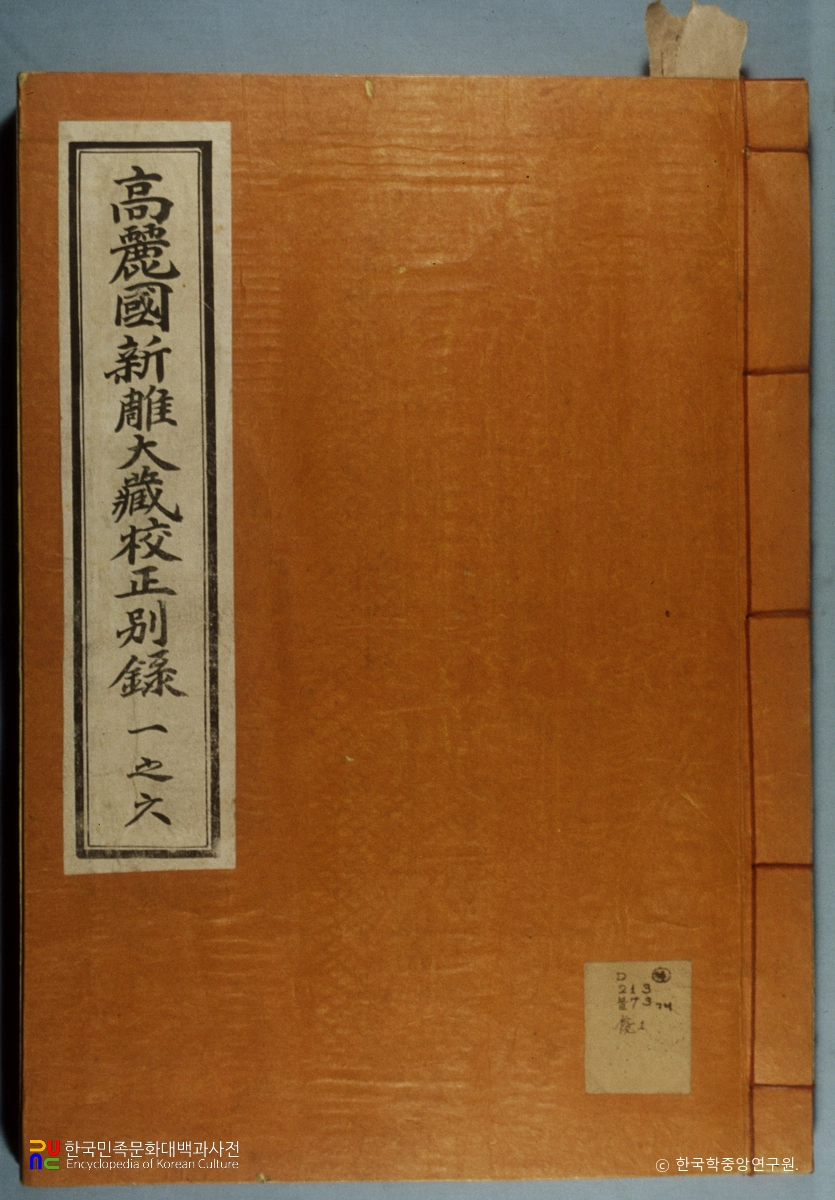 高麗國新雕大藏校正別錄 一之六
D
213
불73ㄱㅐ
한국민족문화대백과사전
Encyclopedia of Korean Culture
© 한국학중앙연구원.